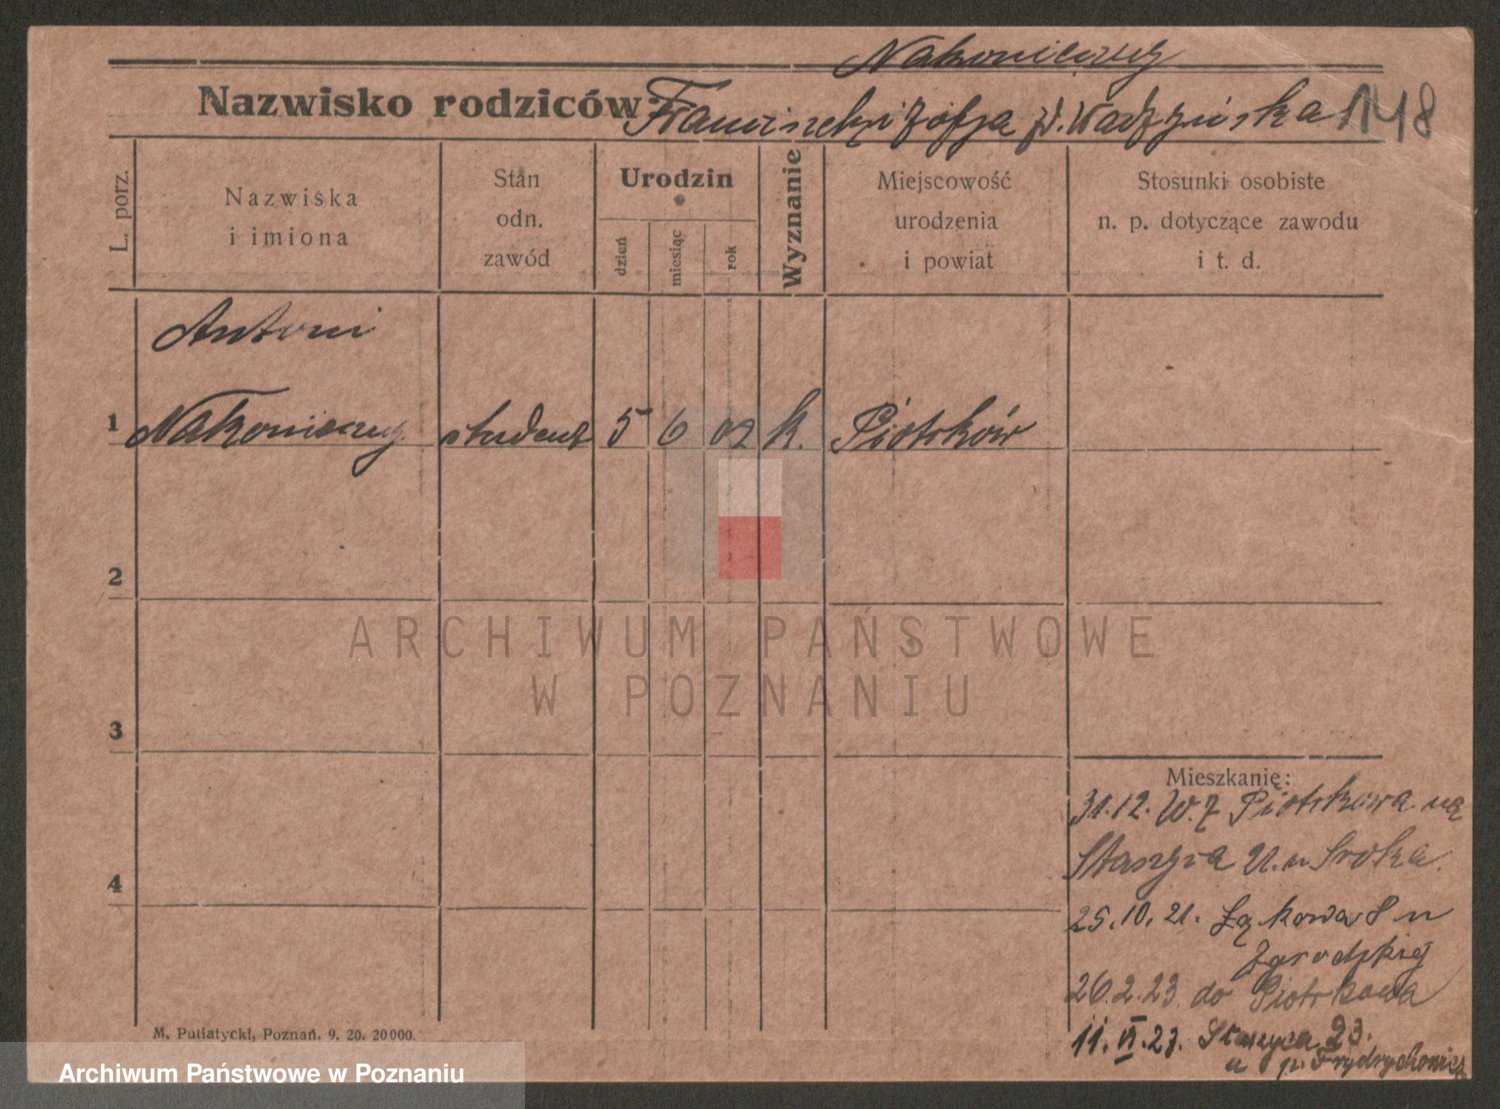 Nakonieczny
Nazwisko rodziców: Franciszek i Zofja zd. Wadzyńska 148
L. porz.
Nazwiska
i imiona
Stan
odn.
zawód
Urodzin
dzień
miesiąc
rok
Wyznanie
Miejscowość
urodzenia
i powiat
Stosunki osobiste
n. p. dotyczące zawodu
i t. d.
Antoni
1 Nakonieczny student 5 6 02 k. Piotrków
2
ARCHIWUM PAŃSTWOWE
W POZNANIU
3
Mieszkanie:
31.12. z Piotrkowa na
Staszyca u Sroka
4
25.10.21. Łąkowa 8 u
Zgrodzkiej
26.2.23. do Piotrkowa
11. VI. 23. Staszyca 23.
u p. Frydrychowicz
M. Putiatycki, Poznań. 9. 20. 20000.
Archiwum Państwowe w Poznaniu